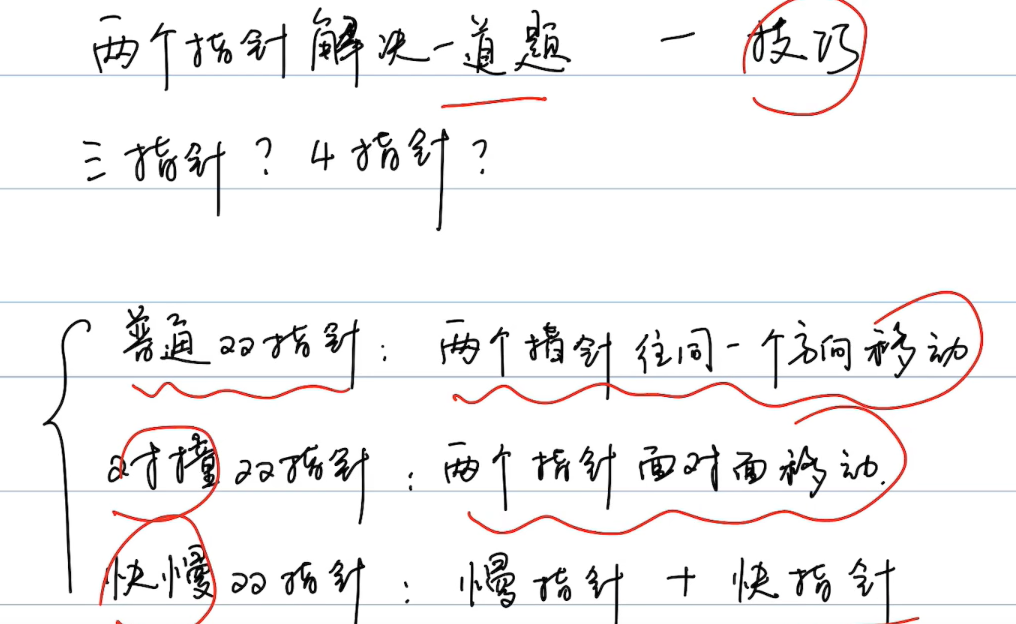 两个指针解决一道题 — 技巧
三指针？4指针？
普通双指针：两个指针往同一个方向移动
对撞双指针：两个指针面对面移动.
快慢双指针：慢指针 + 快指针